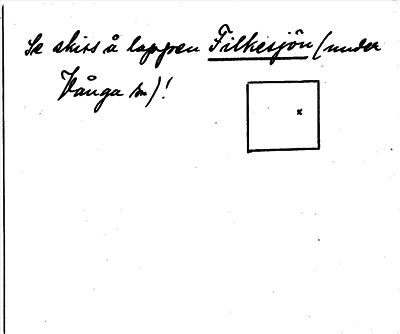 Se skiss å lappen Filkesjön (under
Vånga sn)!